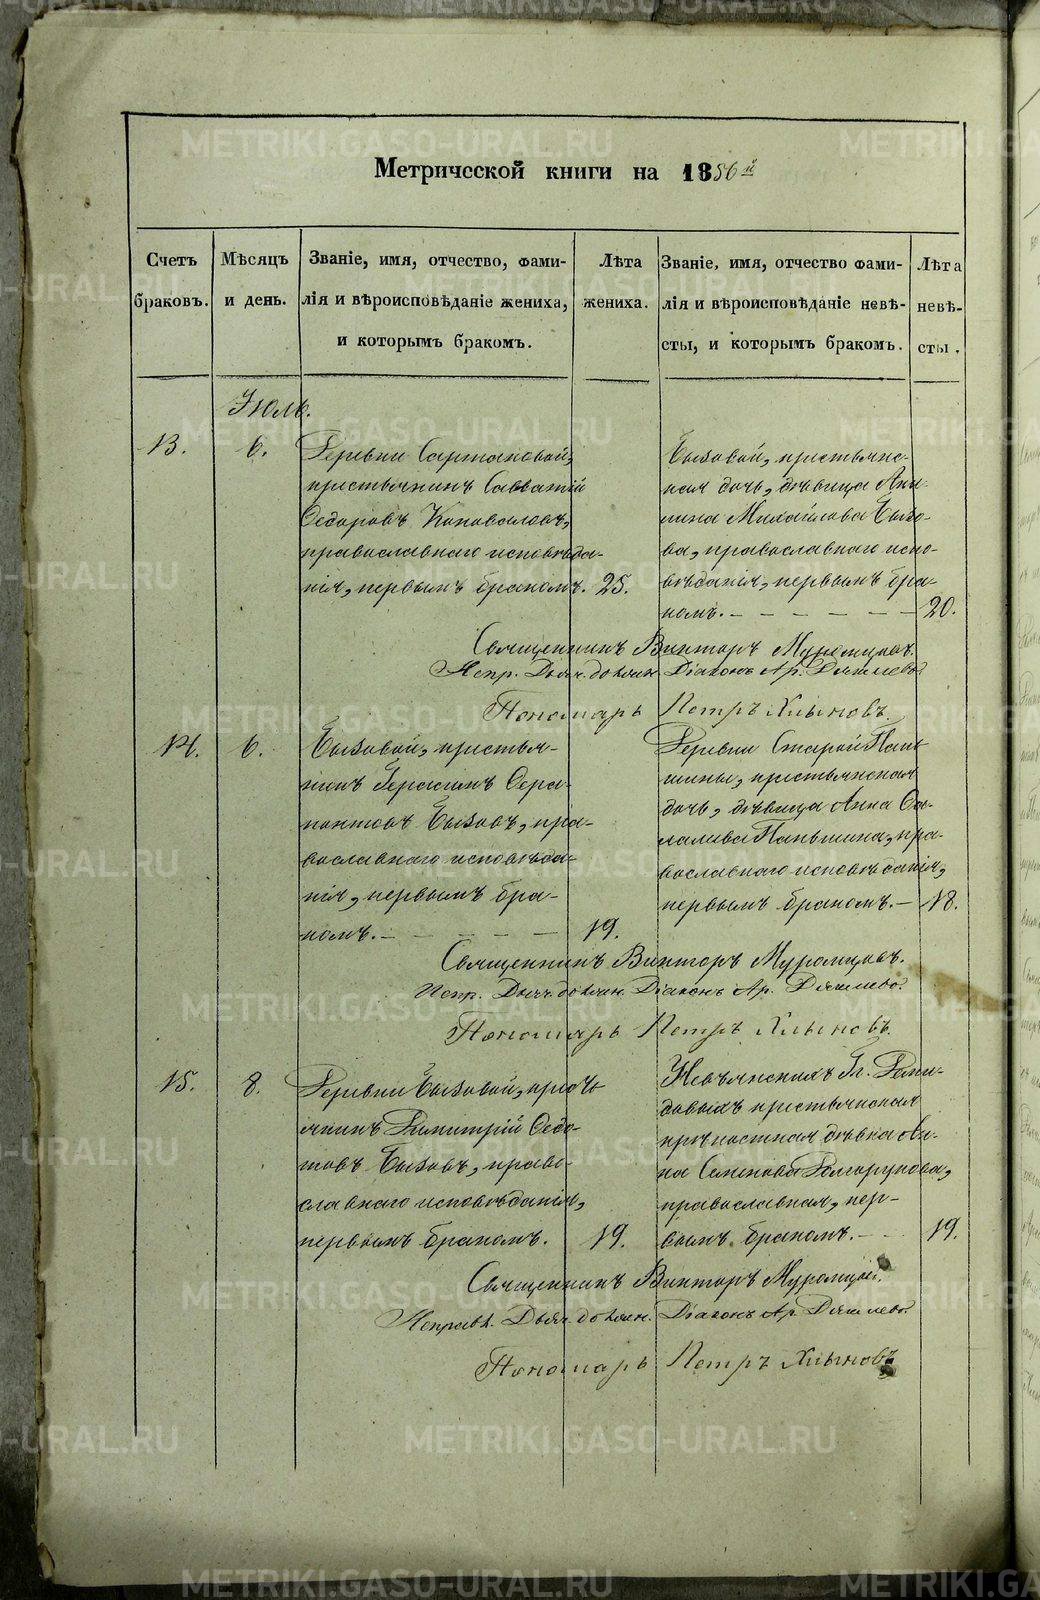 METRIKI.GASO-URAL.RU
Метрической книги на 1856й
Счетъ браковъ.
Мѣсяцъ и день.
Званіе, имя, отчество, фами-
лія и вѣроисповѣданіе жениха,
и которымъ бракомъ.
Лѣта жениха.
Званіе, имя, отчество фами-
лія и вѣроисповѣданіе невѣ-
сты, и которымъ бракомъ.
Лѣта невѣ-
сты.
Іюль.
13. 6.
Деревни
крестьянинъ Савватій
Ѳедоровъ Коновалов,
православнаго исповѣда-
нія, первымъ бракомъ. 25.
Быковой, крестьянс-
кая дочь, дѣвица Аку-
лина Михайлова Быко-
ва, православнаго испо-
вѣданія, первымъ бра-
комъ. — 20.
Священникъ Викторъ Муромцовъ.
Испр. Дьяч. должн. Діаконъ Ар.
Пономарь Петръ Хлыновъ.
14. 6.
Быковой, крестья-
нинъ Герасимъ Ѳера-
понтовъ Быковъ, пра-
вославнаго исповѣда-
нія, первымъ бра-
комъ. — 19.
Деревни Старой Пань-
шины, крестьянская
дочь, дѣвица Анна
Паньшина, пра-
вославнаго исповѣданія,
первымъ бракомъ. — 18.
Священникъ Викторъ Муромцовъ.
Испр. Дьяч. должн. Діаконъ Ар.
Пономарь Петръ Хлыновъ.
15. 8.
Деревни Быковой, кресть
янинъ Димитрій Ѳедо-
товъ Быковъ, право-
славнаго исповѣданія,
первымъ бракомъ. 19.
Невьянскихъ Гг. Деми-
довыхъ крестьянская
крѣпостная дѣвка Ан-
на Семенова Долгорукова,
православная, пер-
вымъ бракомъ. — 19.
Священникъ Викторъ Муромцовъ.
Исправл. Дьяч. должн. Діаконъ Ар.
Пономарь Петръ Хлыновъ